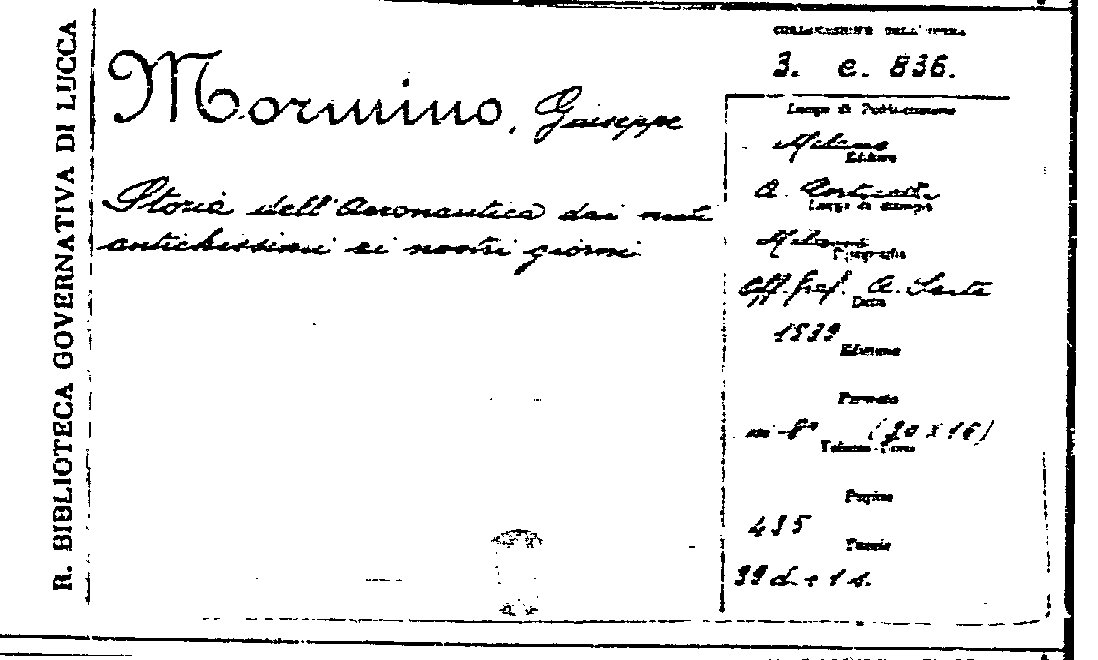 R. BIBLIOTECA GOVERNATIVA DI LUCCA
Mormino, Giuseppe
Storia dell'Aeronautica dai miti
antichissimi ai nostri giorni
COLLOCAZIONE DELL'OPERA
3. e. 836.
Luogo di Pubblicazione
Milano
Editore
A.
Luogo di stampa
Milano
Tipografia
Off. graf. A.
Data
1939
Edizione
Formato
in-8° (20 x 16)
Volume-Tomo
Pagine
435
Tavole